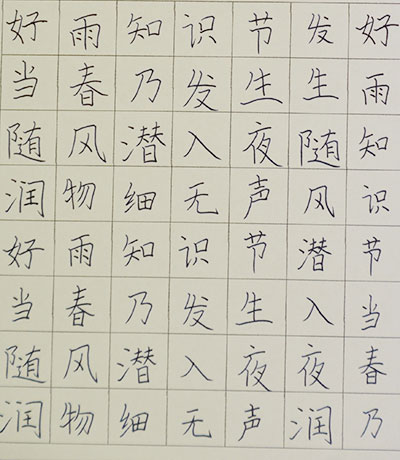 好雨知识节发好
当春乃发生生雨
随风潜入夜随知
润物细无声风识
好雨知识节潜节
当春乃发生入当
随风潜入夜夜春
润物细无声润乃